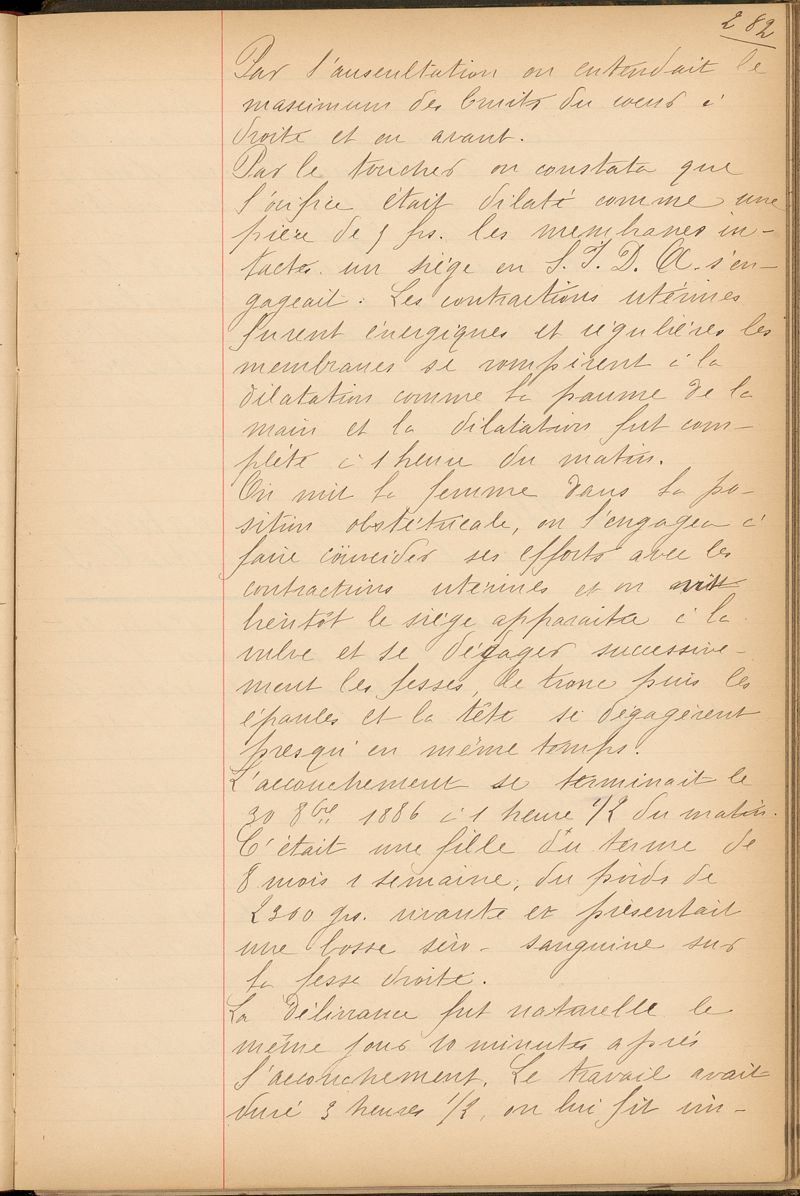 282
Par l'auscultation on entendait le
maximum des bruits du coeur à
droite et en avant.
Par le toucher on constata que
l'orifice était dilaté comme une
pièce de 5 frs. les membranes in-
tactes un siège en S. I. D. A. s'en-
gageait. Les contractions utérines
furent énergiques et régulières les
membranes se rompirent à la
dilatation comme la paume de la
main et la dilatation fut com-
plète à 1 heure du matin.
On mit la femme dans la po-
sition obstétricale, on l'engagea à
faire coïncider ses efforts avec les
contractions utérines et on vit
bientôt le siège apparaitre à la
vulve et se dégager successive-
ment les fesses, le tronc puis les
épaules et la tête se dégagèrent
presqu'en même temps.
L'accouchement se terminait le
30 8bre 1886 à 1 heure 1/2 du matin.
C'était une fille du terme de
8 mois 1 semaine, du poids de
2300 grs. vivante et présentait
une bosse séro-sanguine sur
la fesse droite.
La délivrance fut naturelle le
même jour 10 minutes après
l'accouchement. Le travail avait
duré 3 heures 1/2, on lui fit un-